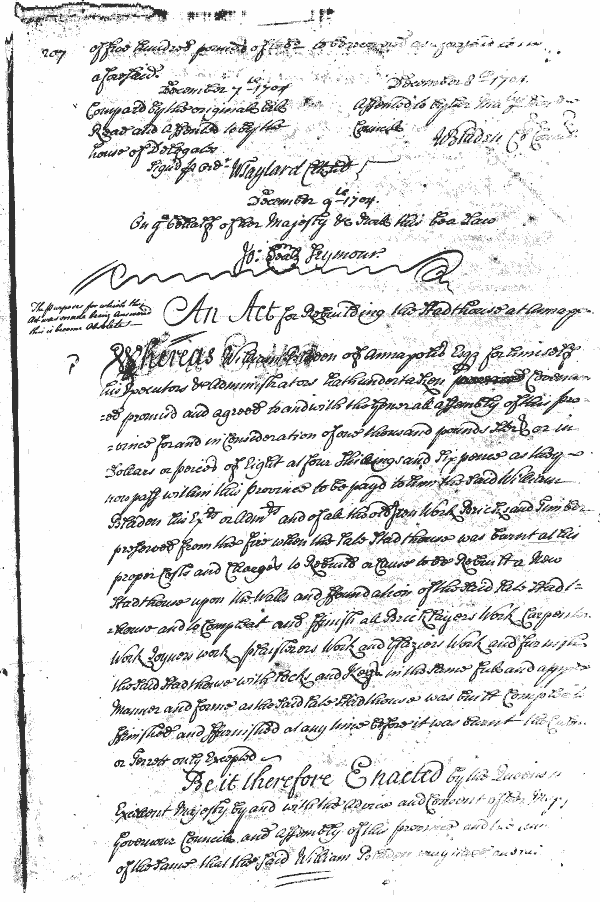 207
of five hundred pounds of Tobo to be
aforesaid.
December 7th 1704
Compard by the originall bill
Read and assented to by the
house of Delegates
Signd p ordr W Taylard Cl
December 8th 1704.
Assented to by her Majtys
Councile
W Bladen Cl Council
December 9th 1704.
On ye behalf of her Majesty &c I will this be a Law
Jo: Seymour.
The purpose for which this
Act was made being answered
this is become Obsolete
An Act for Rebuilding the Stadthouse at Annapo-
Whereas William Bladen of Annapolis Esqr for himself
his Executors & Administrators hath undertaken Covenan-
-ed promisd and agreed to and with the Generall assembly of this pro-
-vince for and in Consideration of one thousand pounds Sterl or in
Dollars or pieces of Eight at four Shillings and Six pence as they
now pass within this Province to be payd to him the said William
Bladen his Exrs or Admrs and of all the old Iron Work Bricks and Timber
preserved from the fire when the late Stadthouse was burnt at his
proper Costs and Charges to Rebuild or Cause to be Rebuilt a New
Stadthouse upon the Walls and ffoundation of the said late Stadt-
-house and to Compleat and ffinish all Bricklayers Work Carpenters
Work Joyners work Plaisterers Work and Glaziers Work and furnish
the said Stadthouse with Locks and Keys in the same full and ample
Manner and forme as the said late Stadthouse was built Compleated
ffinished and ffurnished at any time before it was burnt the
or Turrett only Excepted
Be it therefore Enacted by the Queens
Excellent Majesty by and with the advice and Consent of her Majtys
Governour Councile and Assembly of this province and the
of the same that the said William Bladen